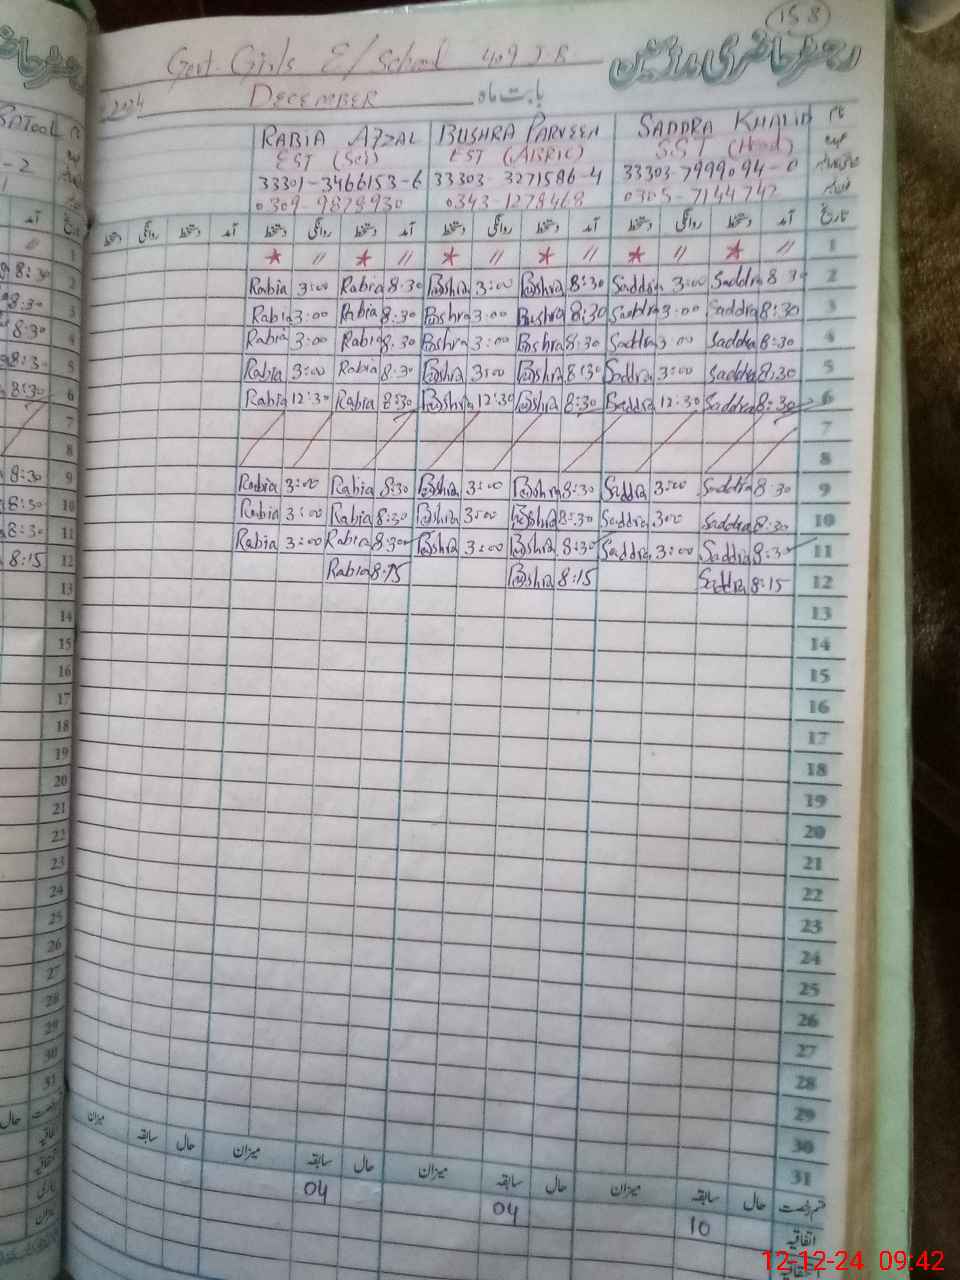 158
Govt. Girls E/School 409 J.B رجسٹر حاضری ملازمین
2024 DECEMBER بابت ماہ
RABIA AFZAL BUSHRA PARVEEN SADDRA KHALID نام
EST (Sci) EST (ARBIC) SST (Head) عہدہ
33301-3466153-6 33303-3271586-4 33303-7999094-0
0309-9879930 0343-1279468 0305-7144742
دستخط روانگی دستخط آمد دستخط روانگی دستخط آمد دستخط روانگی دستخط آمد دستخط روانگی دستخط آمد تاریخ
* 〃 * 〃 * 〃 * 〃 * 〃 * 〃 1
Rabia 3:00 Rabia 8:30 Bushra 3:00 Bushra 8:30 Saddra 3:00 Saddra 8:30 2
Rabia 3:00 Rabia 8:30 Bushra 3:00 Bushra 8:30 Saddra 3:00 Saddra 8:30 3
Rabia 3:00 Rabia 8:30 Bushra 3:00 Bushra 8:30 Saddra 3:00 Saddra 8:30 4
Rabia 3:00 Rabia 8:30 Bushra 3:00 Bushra 8:30 Saddra 3:00 Saddra 8:30 5
Rabia 12:30 Rabia 8:30 Bushra 12:30 Bushra 8:30 Saddra 12:30 Saddra 8:30 6
7
8
Rabia 3:00 Rabia 8:30 Bushra 3:00 Bushra 8:30 Saddra 3:00 Saddra 8:30 9
Rabia 3:00 Rabia 8:30 Bushra 3:00 Bushra 8:30 Saddra 3:00 Saddra 8:30 10
Rabia 3:00 Rabia 8:30 Bushra 3:00 Bushra 8:30 Saddra 3:00 Saddra 8:30 11
Rabia 8:15 Bushra 8:15 Saddra 8:15 12
13
14
15
16
17
18
19
20
21
22
23
24
25
26
27
28
29
30
31
میزان سابقہ حال میزان سابقہ حال میزان سابقہ حال میزان سابقہ حال قسم رخصت
04 04 10 اتفاقیہ
12-12-24 09:42